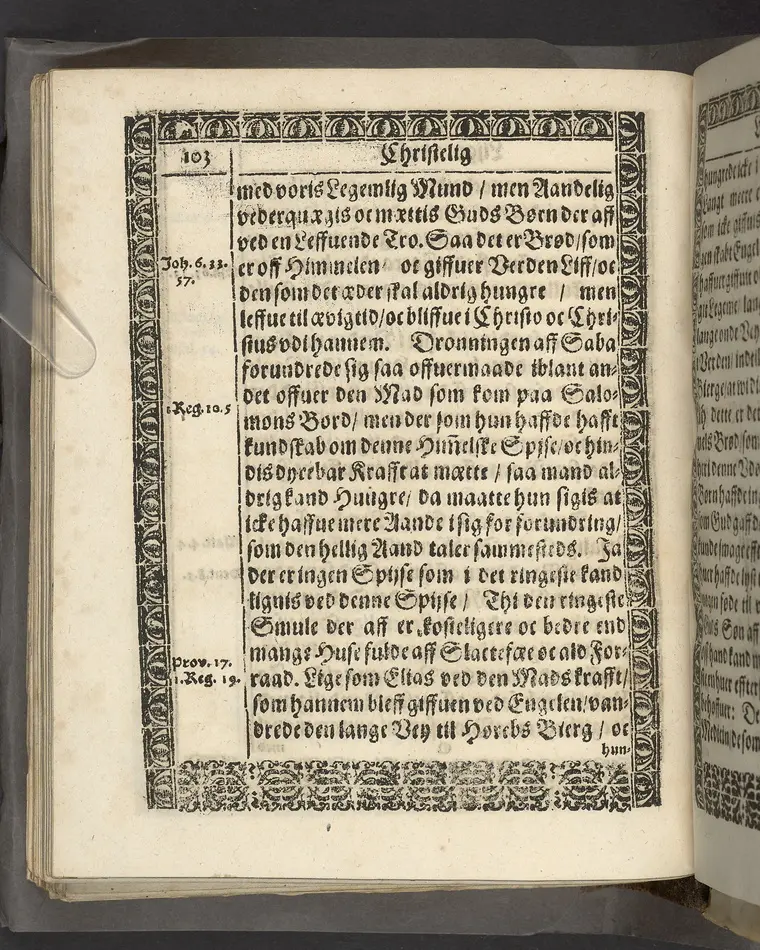 103
Christelig
med voris Legemlig Mund / men Aandelig
vederquægis oc mættis Guds Børn der aff
ved en Leffuende Tro. Saa det er Brød / som
Joh. 6. 33.
57.
er off Himmelen oc giffuer Verden Liff / oc
den som det æder skal aldrig hungre / men
leffue til ævig tid / oc bliffue i Christo oc Chri-
stus vdi hannem. Dronningen aff Saba
forundrede sig saa offuermaade iblant an-
det offuer den Mad som kom paa Salo-
1. Reg. 10. 5
mons Bord / men der som hun haffde hafft
kundskab om denne Himelske Spjse / oc hin-
dis dyrebar Krafft at mætte / saa mand al-
drig kand Hungre / da maatte hun sigis at
icke haffue mere Aande i sig for forundring /
som den hellig Aand taler sammesteds. Ja
der er ingen Spjse som i det ringeste kand
lignis ved denne Spjse / Thi den ringeste
Smule der aff er kosteligere oc bedre end
mange Huse fulde aff Slactefæ oc ald For-
Prov. 17.
1. Reg. 19.
raad. Lige som Elias ved den Mads krafft /
som hannem bleff giffuen ved Engelen / van-
drede den lange Vey til Horebs Bierg / oc
hun-